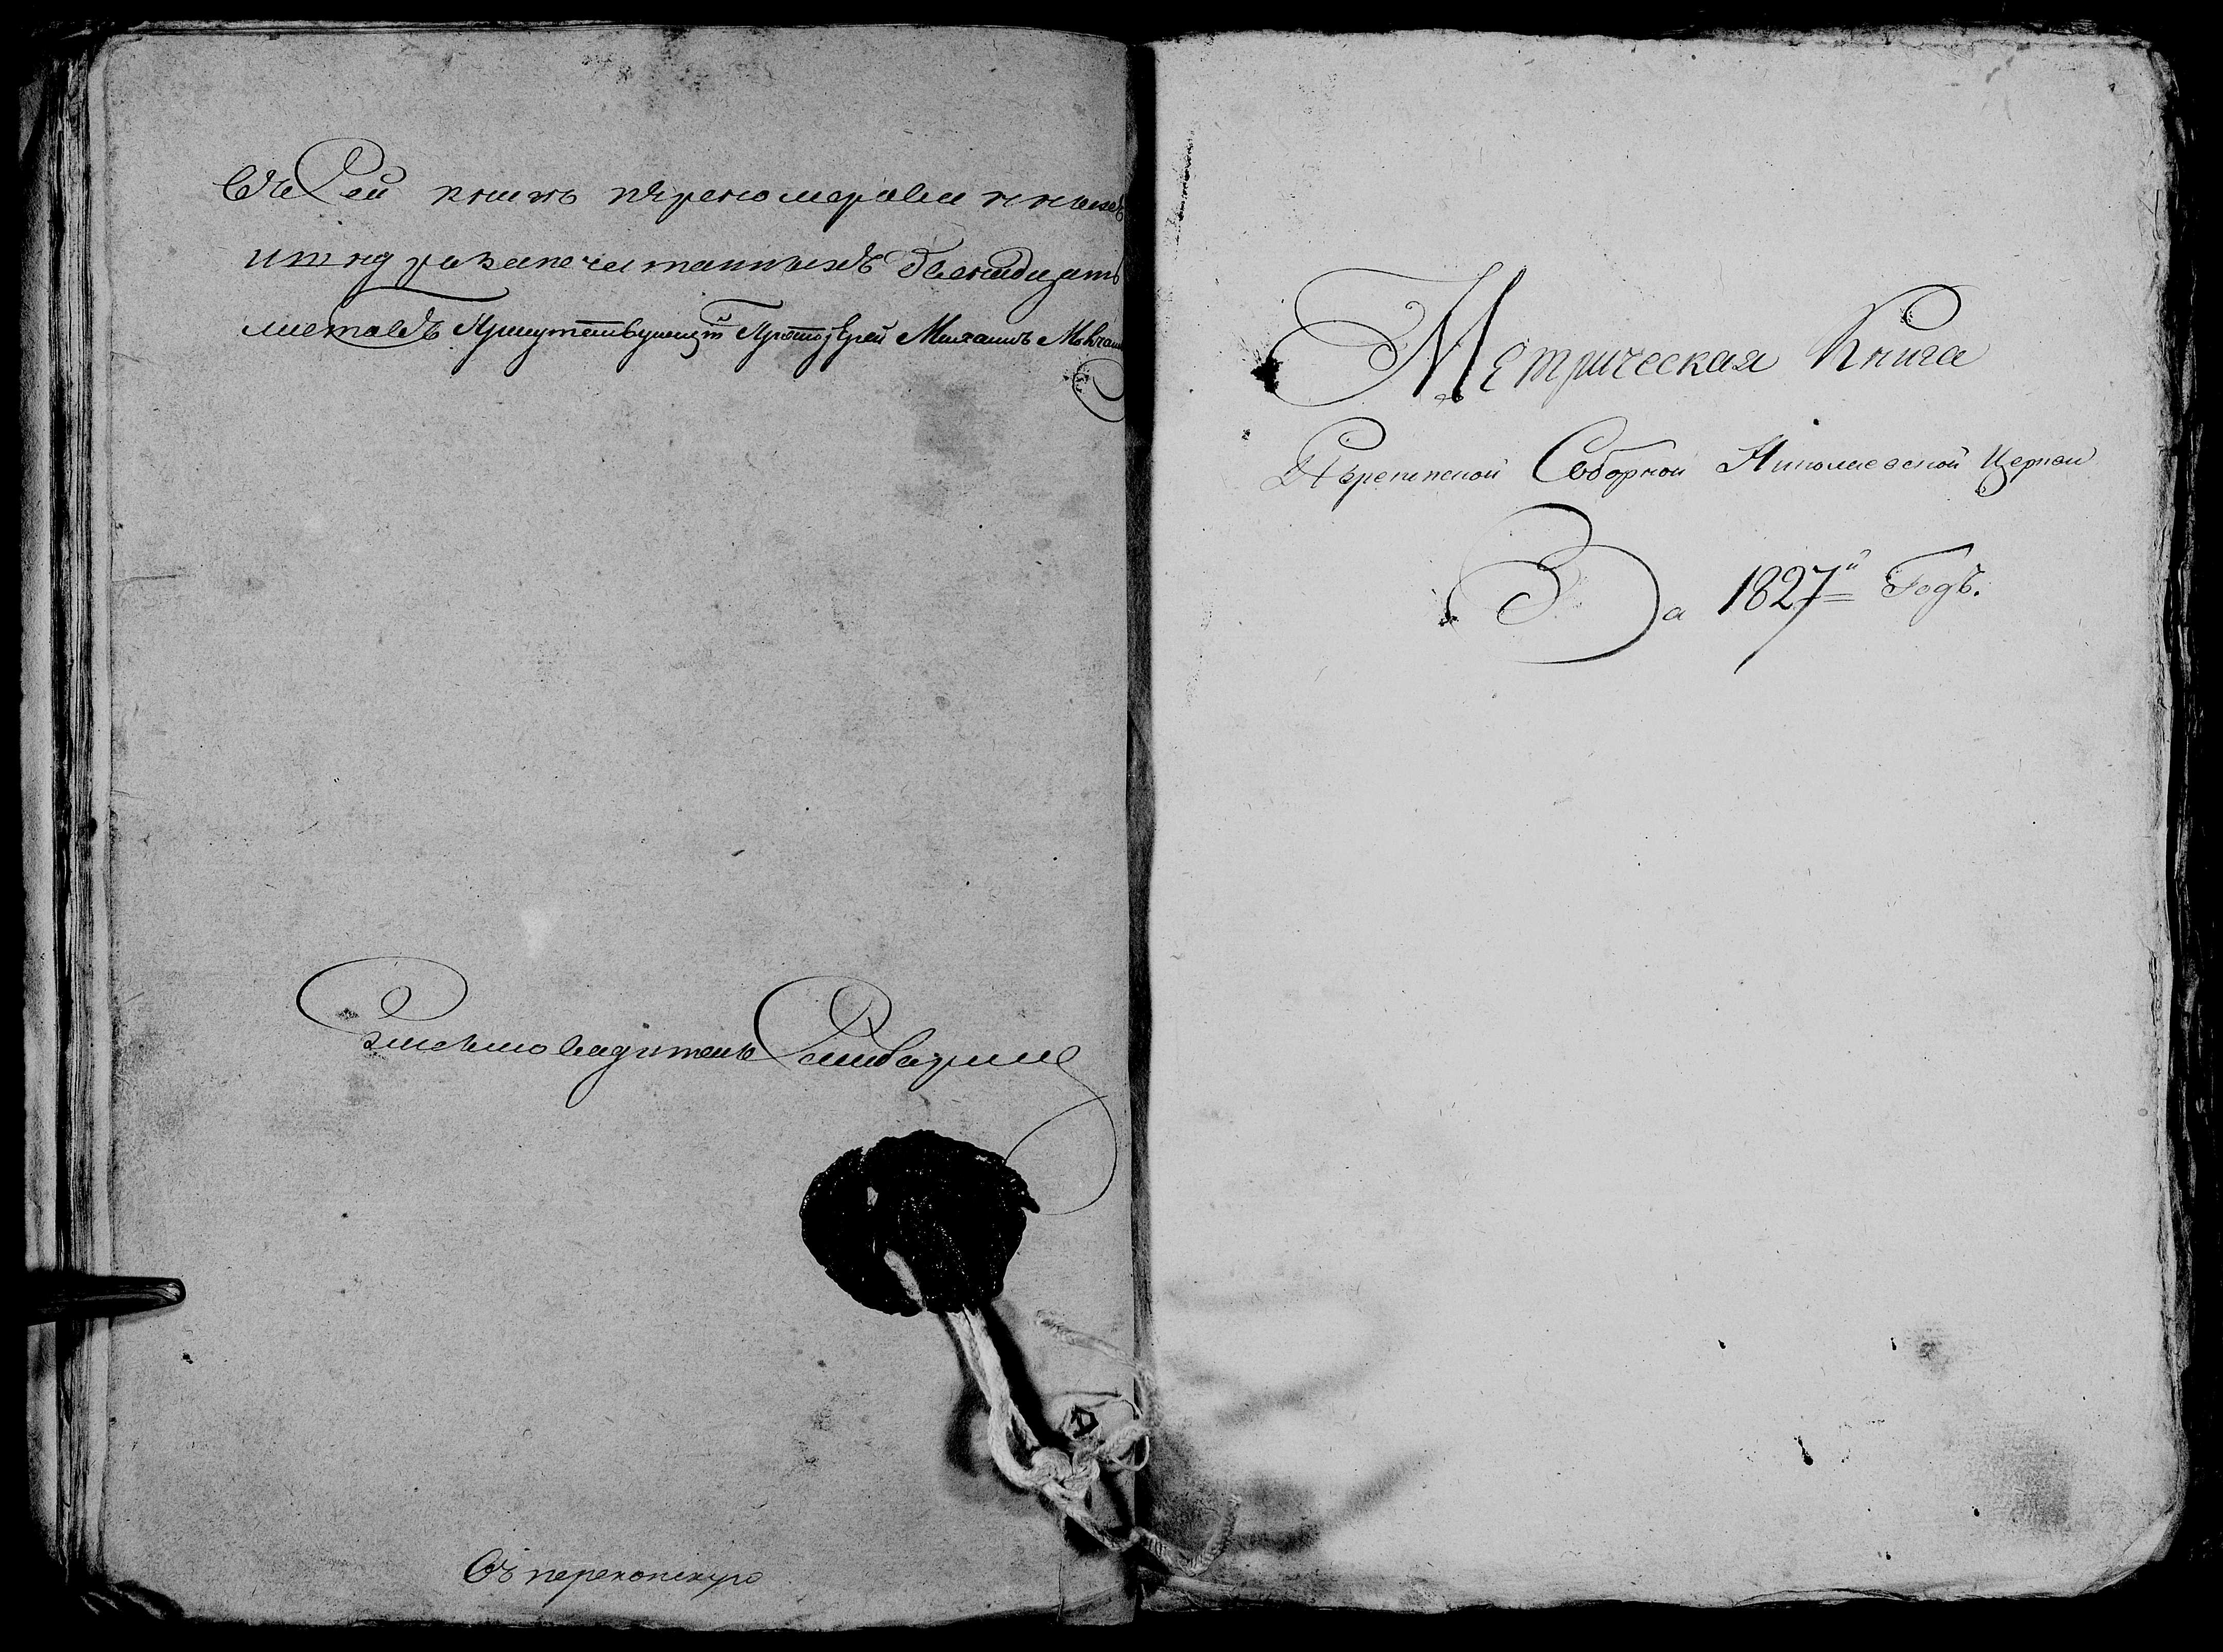 Въ Сей книгѣ перенумерованныхъ
и шнуразапечатанныхъ двенадцать
листовъ Присутствующій Протоіерей Михаилъ
Письмоводитель
Въ перекопскую
Метрическая Книга
Перекопской Соборной Николаевской Церкви
За 1827й Годъ.